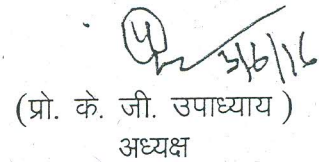 3/6/16
(प्रो. के. जी. उपाध्याय )
अध्यक्ष